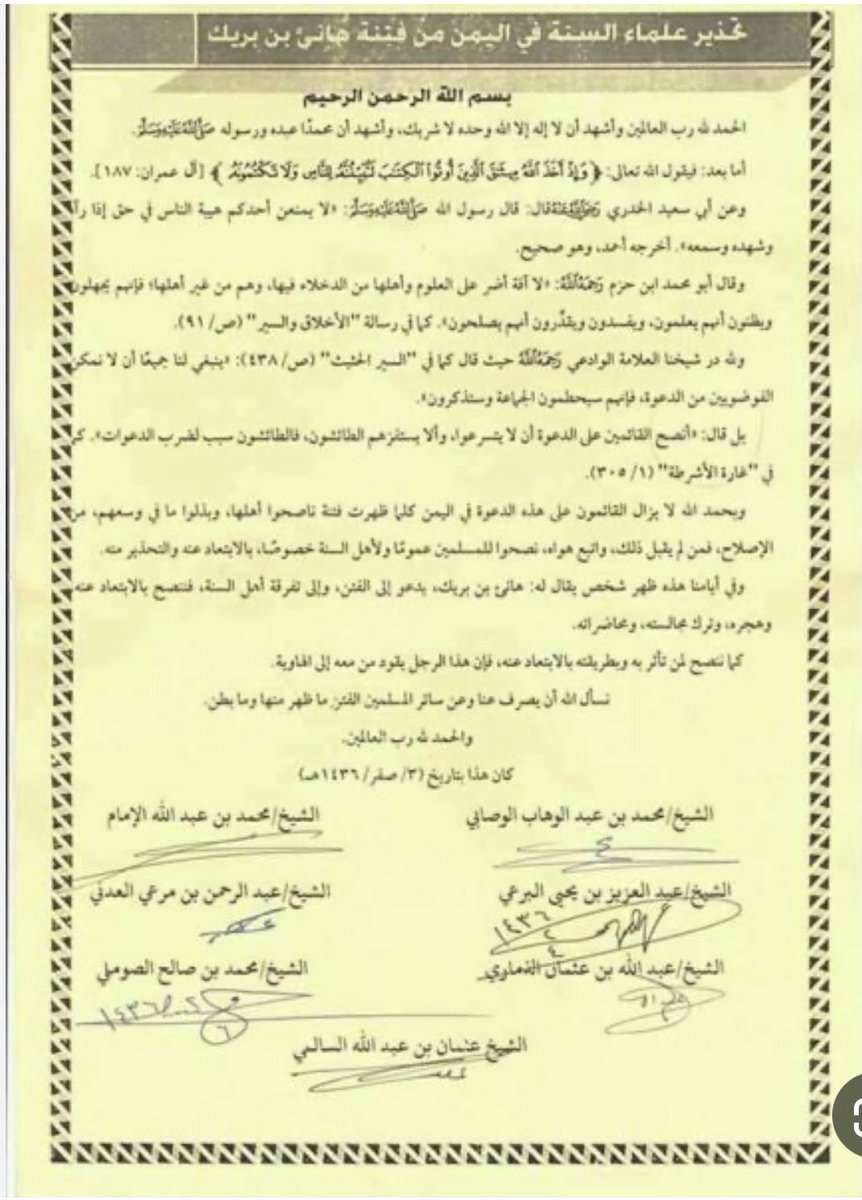 تحذير علماء السنة في اليمن من فتنة هانئ بن بريك
بسم الله الرحمن الرحيم
الحمد لله رب العالمين وأشهد أن لا إله إلا الله وحده لا شريك، وأشهد أن محمدًا عبده ورسوله صَلَّى اللَّهُ عَلَيْهِ وَسَلَّمَ.
أما بعد: فيقول الله تعالى: ﴿ وَإِذْ أَخَذَ اللَّهُ مِيثَاقَ الَّذِينَ أُوتُوا الْكِتَابَ لَتُبَيِّنُنَّهُ لِلنَّاسِ وَلَا تَكْتُمُونَهُ ﴾ [آل عمران: ١٨٧].
وعن أبي سعيد الخدري رَضِيَ اللَّهُ عَنْهُ قال: قال رسول الله صَلَّى اللَّهُ عَلَيْهِ وَسَلَّمَ: «لا يمنعن أحدكم هيبة الناس في حق إذا رآ
وشهده وسمعه». أخرجه أحمد، وهو صحيح.
وقال أبو محمد ابن حزم رَحِمَهُ اللَّهُ: «لا آفة أضر على العلوم وأهلها من الدخلاء فيها، وهم من غير أهلها؛ فإنهم يجهلون
ويظنون أنهم يعلمون، ويفسدون ويقدِّرون أنهم يصلحون». كما في رسالة "الأخلاق والسير" (ص/ ٩١).
ولله در شيخنا العلامة الوادعي رَحِمَهُ اللَّهُ حيث قال كما في "السير الحثيث" (ص/ ٤٣٨): «ينبغي لنا جميعًا أن لا نمكن
الفوضويين من الدعوة، فإنهم سيحطمون الجماعة وستذكرون».
بل قال: «أنصح القائمين على الدعوة أن لا يتسرعوا، وألا يستفزهم الطائشون، فالطائشون سبب لضرب الدعوات». كم
في "غارة الأشرطة" (١/ ٣٠٥).
وبحمد الله لا يزال القائمون على هذه الدعوة في اليمن كلما ظهرت فتنة ناصحوا أهلها، وبذلوا ما في وسعهم، من
الإصلاح، فمن لم يقبل ذلك، واتبع هواه، نصحوا للمسلمين عمومًا ولأهل السنة خصوصًا، بالابتعاد عنه والتحذير منه.
وفي أيامنا هذه ظهر شخص يقال له: هانئ بن بريك، يدعو إلى الفتن، وإلى تفرقة أهل السنة، فننصح بالابتعاد عنه
وهجره، وترك مجالسته، ومحاضراته.
كما ننصح لمن تأثر به وبطريقته بالابتعاد عنه، فإن هذا الرجل يقود من معه إلى الهاوية.
نسأل الله أن يصرف عنا وعن سائر المسلمين الفتن ما ظهر منها وما بطن.
والحمد لله رب العالمين.
كان هذا بتاريخ (٣/ صفر/ ١٤٣٦هـ)
الشيخ/محمد بن عبد الوهاب الوصابي
الشيخ/محمد بن عبد الله الإمام
الشيخ/عبد العزيز بن يحيى البرعي
١٤٣٦
الشيخ/عبد الرحمن بن مرعي العدني
الشيخ/عبد الله بن عثمان الذماري
الشيخ/محمد بن صالح الصوملي
١٤٣٦
الشيخ عثمان بن عبد الله السالمي